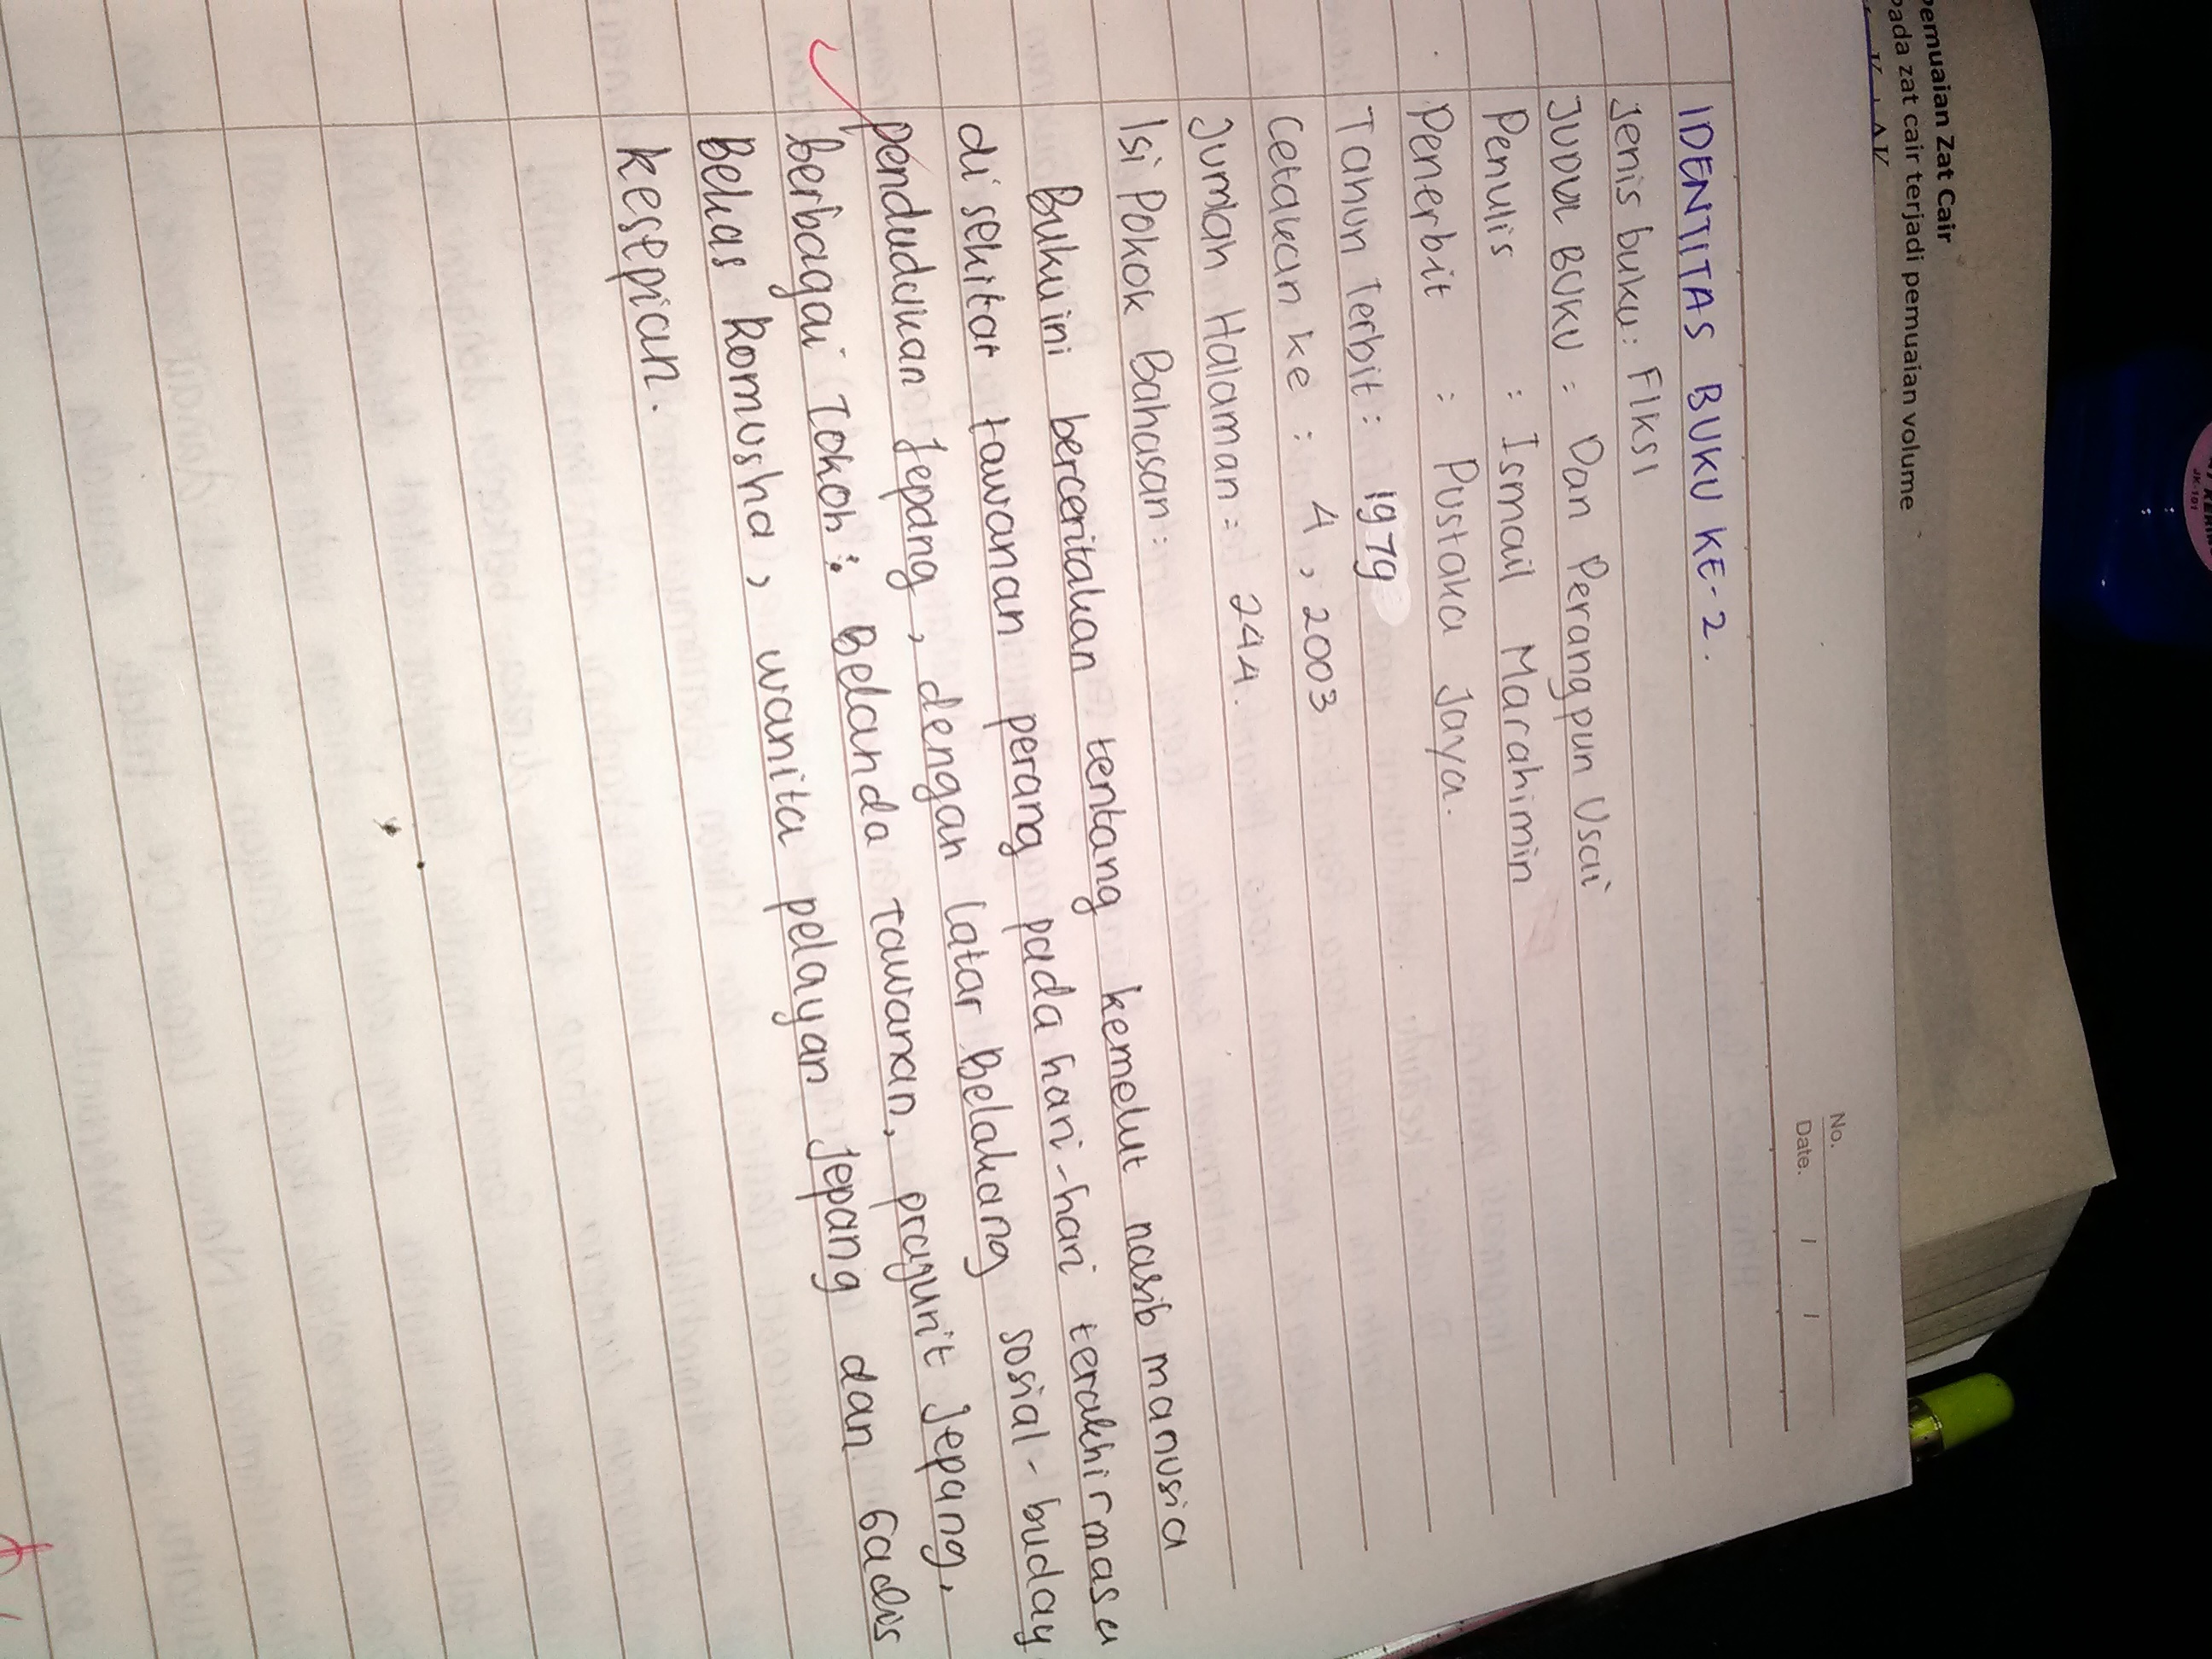 pemuaian Zat Cair
pada zat cair terjadi pemuaian volume
No.
Date. / /
IDENTITAS BUKU KE-2.
Jenis buku: FIKSI
JUDUL BUKU : Dan Perangpun Usai
Penulis : Ismail Marahimin
Penerbit : Pustaka Jaya.
Tahun Terbit : 1979
Cetakan ke : 4, 2003
Jumlah Halaman : 244.
Isi Pokok Bahasan:
Buku ini berceritakan tentang kemelut nasib manusia
di sekitar tawanan perang pada hari-hari terakhir masa
pendudukan Jepang, dengan latar Belakang sosial-buday
berbagai Tokoh: Belanda Tawanan, prajurit Jepang,
Bekas Romusha, wanita pelayan Jepang dan Gadis
kesepian.